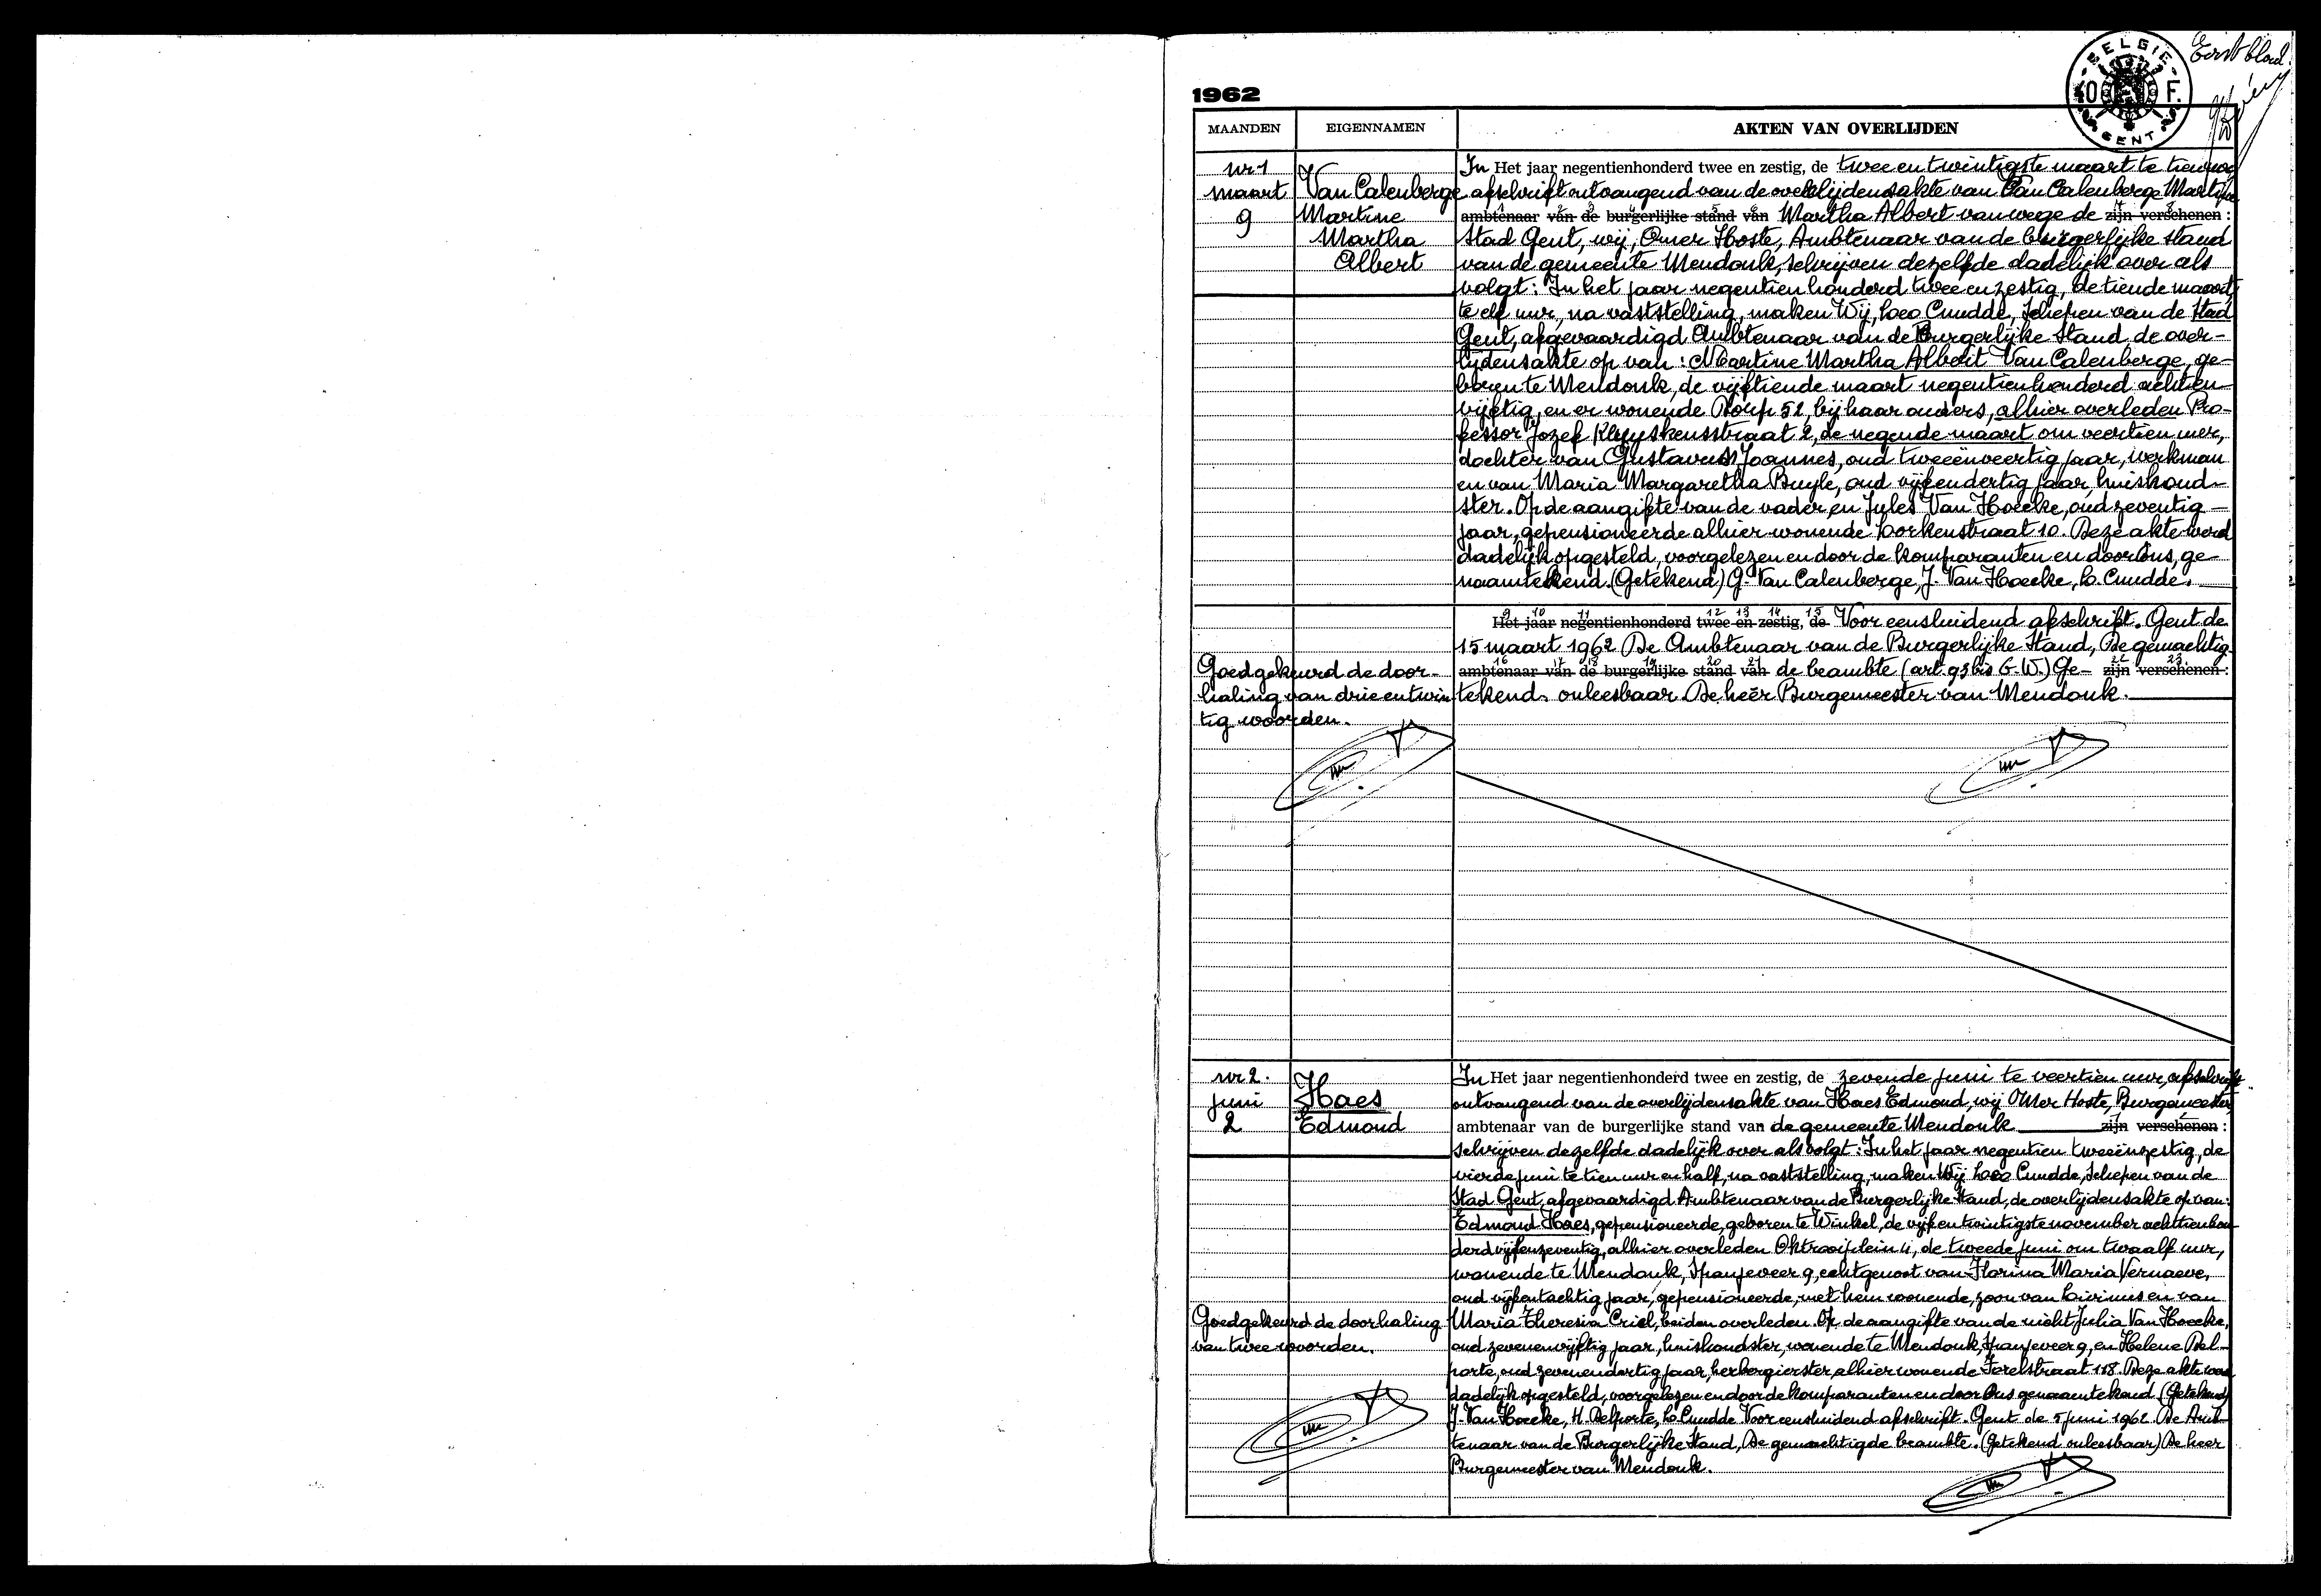 Eerst blad.
BELGIE
40 F.
GENT
1962
MAANDEN EIGENNAMEN AKTEN VAN OVERLIJDEN
nr 1
maart
9
Van Calenberge
Martine
Martha
Albert
In Het jaar negentienhonderd twee en zestig, de twee en twintigste maart te tien uur
afschrift ontvangend van de overlijdensakte van Van Calenberge Martine
ambtenaar van de burgerlijke stand van Martha Albert vanwege de zijn verschenen :
Stad Gent, wij, Omer Hoste, Ambtenaar van de burgerlijke stand
van de gemeente Mendonk, schrijven dezelfde dadelijk over als
volgt: In het jaar negentienhonderd twee en zestig, de tiende maart,
te elf uur, na vaststelling, maken Wij, Leo Cnudde, Schepen van de Stad
Gent, afgevaardigd Ambtenaar van de Burgerlijke Stand, de over-
lijdensakte op van : Martine Martha Albert Van Calenberge, ge-
boren te Mendonk, de vijftiende maart negentienhonderd achten-
vijftig, en er wonende Dorp 52, bij haar ouders, alhier overleden Pro-
fessor Jozef Kluyskensstraat 2, de negende maart om veertien uur,
dochter van Gustavus Joannes, oud tweeënveertig jaar, werkman
en van Maria Margaretha Buyle, oud vijfendertig jaar, huishoud-
ster. Op de aangifte van de vader en Jules Van Hoecke, oud zeventig
jaar, gepensioneerde alhier wonende Lorkenstraat 10. Deze akte werd
dadelijk opgesteld, voorgelezen en door de komparanten en door Ons, ge-
naamtekend. (Getekend) G. Van Calenberge, J. Van Hoecke, L. Cnudde.
9 10 11 12 13 14 15
Het jaar negentienhonderd twee en zestig, de Voor eensluidend afschrift. Gent de
15 maart 1962 De Ambtenaar van de Burgerlijke Stand, De gemachtig-
16 17 18 19 20 21 22 23
ambtenaar van de burgerlijke stand van de beambte (art. 93 bis G.W.) Ge- zijn verschenen :
tekend. onleesbaar. De heer Burgemeester van Mendonk.
Goedgekeurd de door-
haling van drie en twin
tig woorden.
nr 2.
juni
2
Haes
Edmond
In Het jaar negentienhonderd twee en zestig, de zevende juni te veertien uur, afschrift
ontvangend van de overlijdensakte van Haes Edmond, wij Omer Hoste, Burgemeester,
ambtenaar van de burgerlijke stand van de gemeente Mendonk zijn verschenen :
schrijven dezelfde dadelijk over als volgt: In het jaar negentien tweeënzestig, de
vierde juni te tien uur en half, na vaststelling, maken Wij Leo Cnudde, Schepen van de
Stad Gent, afgevaardigd Ambtenaar van de Burgerlijke Stand, de overlijdensakte op van:
Edmond Haes, gepensioneerde, geboren te Winkel, de vijf en twintigste november achttienhon-
derd vijfenzeventig, alhier overleden Oktrooiplein 4, de tweede juni om twaalf uur,
wonende te Mendonk, Spanjeveer 9, echtgenoot van Florina Maria Vernaeve,
oud vijfentachtig jaar, gepensioneerde, met hem wonende, zoon van Livinus en van
Maria Theresia Criel, beiden overleden. Op de aangifte van de nicht Julia Van Hoecke,
oud zevenenvijftig jaar, huishoudster, wonende te Mendonk, Spanjeveer 9, en Helene Del-
porte, oud zevenendertig jaar, herbergierster, alhier wonende Forelstraat 118. Deze akte werd
dadelijk opgesteld, voorgelezen en door de komparanten en door Ons genaamtekend (Getekend)
J. Van Hoecke, H. Delporte, L. Cnudde Voor eensluidend afschrift. Gent de 5 juni 1962. De Amb-
tenaar van de Burgerlijke Stand, De gemachtigde beambte. (Getekend onleesbaar) De heer
Burgemeester van Mendonk.
Goedgekeurd de doorhaling
van twee woorden.